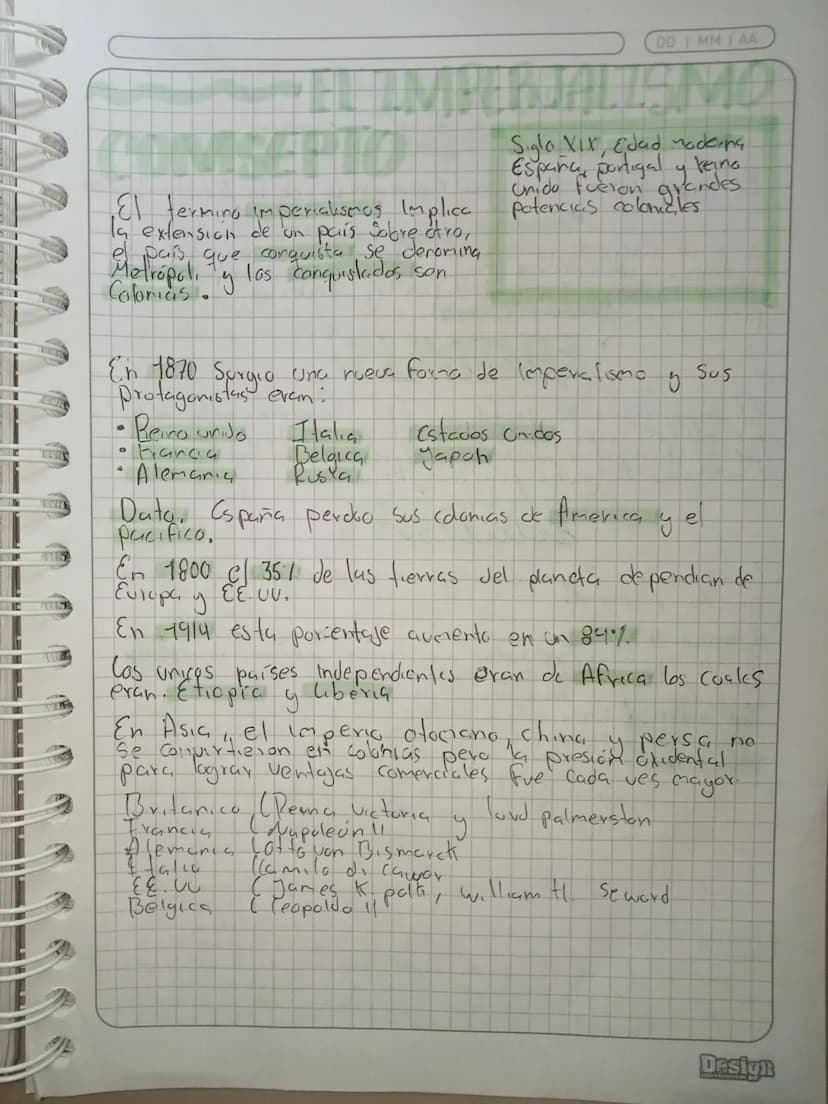 DD | MM | AA
EL IMPERIALISMO
CONSEPTO
Siglo XIX, Edad moderna
España, portigal y reino
unido fueron grandes
potencias coloniales
El termino imperialismos Implica
la extension de un país sobre otro,
el país que conquista se denomina
Metrópoli y los conquistados son
Colonias.
En 1870 Surgio una nueva forma de Imperialismo y sus
protagonistas eran:
• Reino unido Italia Estados unidos
• Francia Belgica Japon
• Alemania Rusia
Dato. España perdio sus colonias de America y el
pacifico.
En 1800 el 35% de las tierras del planeta dependian de
Europa y EE.UU.
En 1914 esta porientaje aumento en un 84%.
Los unicos países Independientes eran de Africa los cuales
eran. Etiopia y liberia
En Asia, el imperio otomano, china y persa no
se convirtieron en colonias pero la presión oxidental
para lograr ventajas comerciales fue cada ves mayor.
Britanico (Reina victoria y lord palmerston
Francia (Napoleón II
Alemania (otto von Bismarck
Italia (Camilo di cavor
EE.UU (James K. polk, william H. seward
Belgica (Leopoldo II
Design